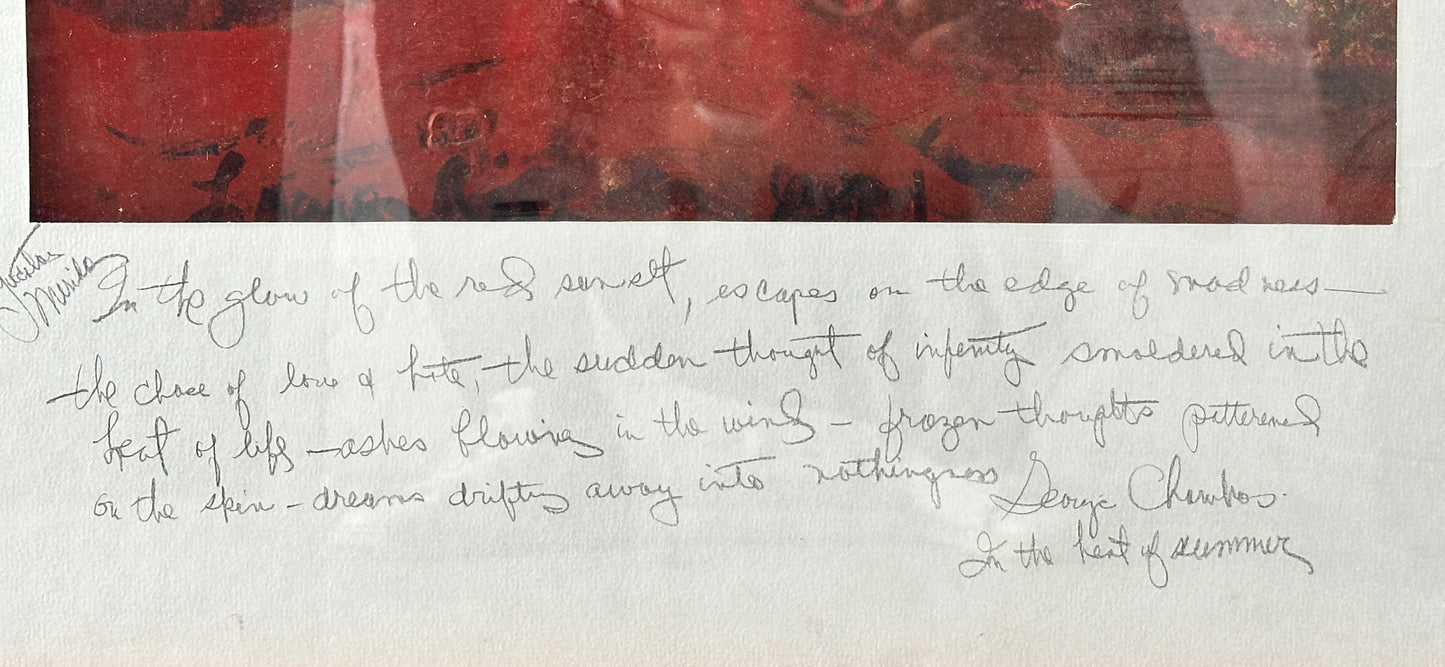 Merida
In the glow of the red sunset, escapes on the edge of madness —
the chase of love & hate, — the sudden thought of infinity smoldered in the
heat of life — ashes flowing in the wind — frozen thoughts patterened
on the skin — dreams drifting away into nothingness George Chambos.
In the heat of summer